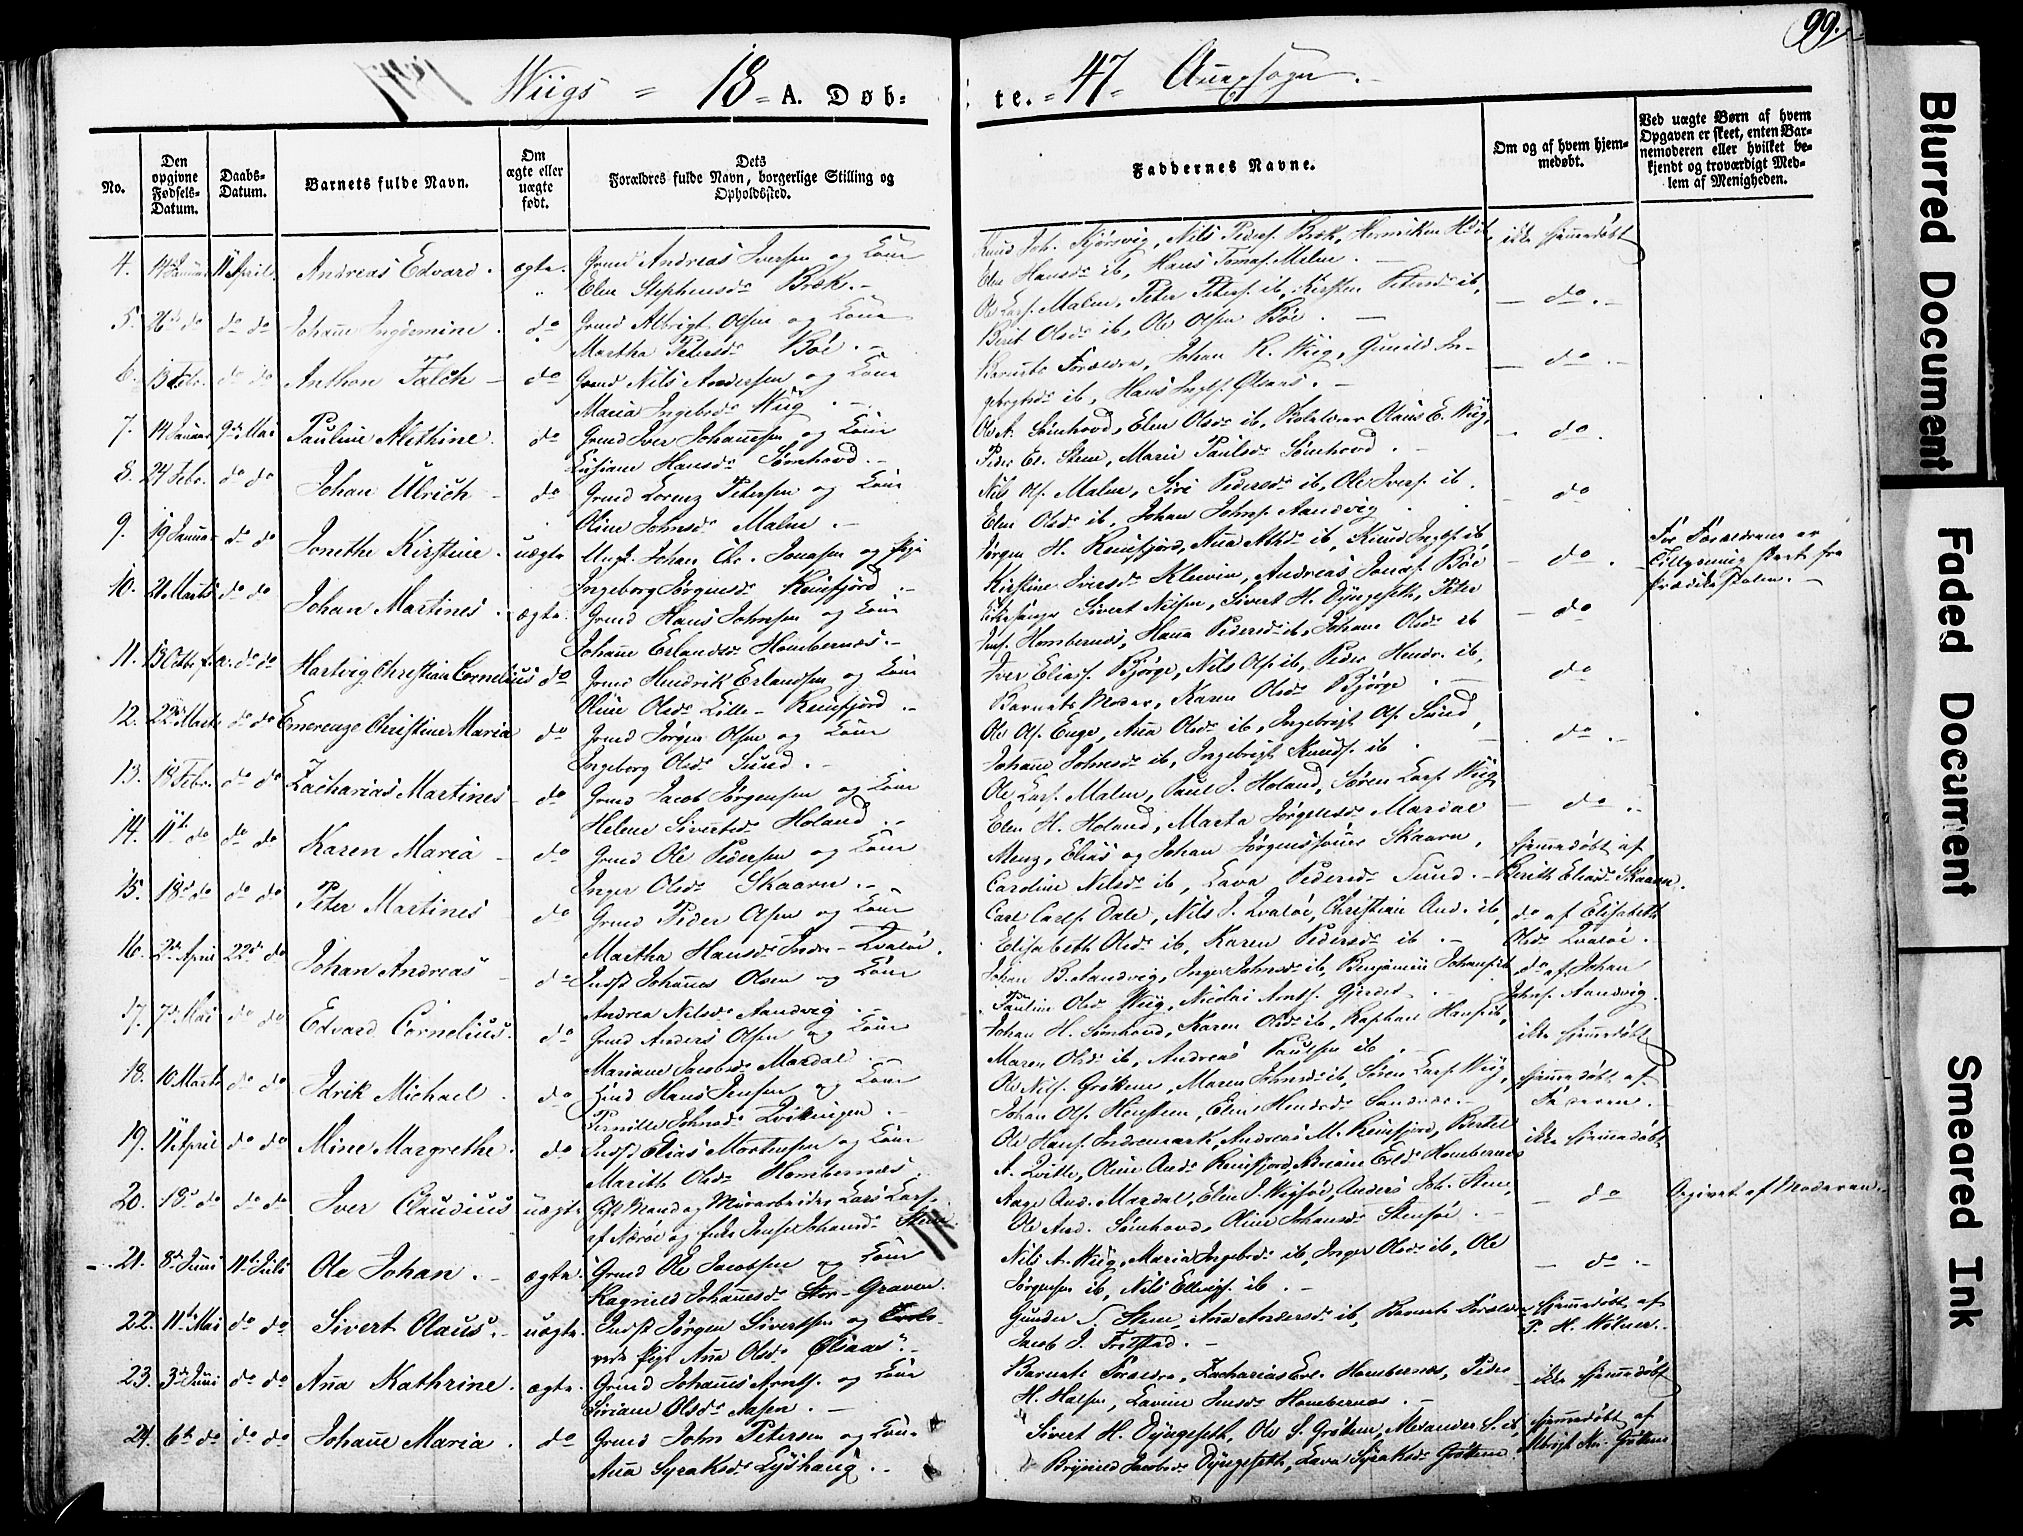 99.
Wiigs = 18 = A. Døb=
te. = 47 = Anexsogn.
No.
Den opgivne Fødsels-Datum.
Daabs-Datum.
Barnets fulde Navn.
Om ægte eller uægte født.
Dets Forældres fulde Navn, borgerlige Stilling og Opholdssted.
Faddernes Navne.
Om og af hvem hjemmedøbt.
Ved uægte Børn af hvem Opgaven er skeet, enten Barnemoderen eller hvilket bekjendt og troværdigt Medlem af Menigheden.
4. 11 April Andreas Edvard. ægte. Gmd Andreas Iversen og Kone
Elen Stephensdr Bræk.
Hans Tomas. Malm.
ikke hjemmedøbt
5. 26 do do do Johane Ingermine. do Gmd Albrigt Olsen og Kone
Martha Petersdr Böe.
Ole Lars. Malm, Peter Peters. ib, Kirsten Petersdr ib,
Berit Olsdr ib, Ole Olsen Böe.
do.
6. 13 Febr. do do Anthon Falch do Gmd Nils Andersen og Kone
Maria Ingebrdr Wiig.
Barnets Forældre, Johan K. Wiig, Gunild In-
gebrgtsdr ib, Hans Ingbs. Olsaas.
do
7. 14 Januar 9de Mai Pauline Alethine. do Gmd Iver Johannesen og Kone
Hansdr Sömhovd.
Ole A. Sömhovd, Elen Olsdr ib, Claus E. Wiig,
Peder Er. Stene, Marie Paulsdr Sömhovd.
do.
8. 24 Febr. do do Johan Ulrich do Gmd Lorenz Petersen og Kone
Oline Johnsdr Malm.
Nils Ols. Malm, Siri Pedersdr ib, Ole Ivers. ib.
Elen Olsdr ib, Johan Johns. Aandvig
do
9. 19 Januar do do Jonethe Kirstine. uægte Ungk. Johan Chr. Jonasen og Pige
Ingeborg Jørgensdr Reinsfjord
Jørgen H. Reinsfjord, ib, Knud ib,
Kirstine Iversdr Andreas Jonas. Böe
do.
For Forældrene er
fra
Prædikestolen.
10. 21 Marts do do Johan Martines. ægte. Gmd Hans Johnsen og Kone
Johane Erlandsdr Hombernæs.
Kirkesanger Sivert Nilsen, Sivert H. Dyngeseth, Peter
Hombernæs, Hanna Pedersdr ib, Johane Olsdr ib
do
11. 13 Octbr f.a. do do Hartvig Christian Cornelius do Gmd Hendrik Erlandsen og Kone
Oline Olsdr Lille-Reinsfjord.
Iver Elias. Bjørge, Nils Ols. ib, Peder Hendr. ib,
Barnets Moder, Karen Olsdr Bjørge
do
12. 22 Marts do do Emerenze Christine Maria do Gmd Jørgen Olsen og Kone
Ingeborg Olsdr Sund.
Ole Ols. Enge, Ana Olsdr ib, Ingebrigt Ols. Sund,
Johane Johnsdr ib, Ingebrigt Knuds. ib
do.
13. 18 Febr. do do Zacharias Martines do Gmd Jacob Jørgensen og Kone
Helene Sivertsdr Holand.
Ole Lars. Malm, Paul J. Holand, Søren Lars. Wiig,
Elen H. Holand, Marta Jørgensdr Mardal
do.
14. 11te do do do Karen Maria do Gmd Ole Pedersen og Kone
Inger Olsdr Skaarn.
Menz, Elias og Johan Jørgenssönner Skaarn,
Caroline Nilsdr ib, Lava Pedersdr Sund.
hjemmedøbt af
Berith Eliasdr Skaarn.
15. 18d do do do Peter Martines do Gmd Peder Olsen og Kone
Martha Hansdr Indre-Qvalöe.
Carl Carls. Dale, Nils J. Qvalöe, Christian And. ib,
Elisabeth Olsdr ib, Karen Pedersdr ib
do af Elisabeth
Olsdr Qvalöe.
16. 2de April 22de do Johan Andreas do Indst Johannes Olsen og Kone
Andrea Nilsdr Aandvig
Johan B. Aandvig, Inger Johnsdr ib, Benjamin Johans. ib
Pauline Olsdr Wiig, Nicolai Arnts. Gjerdet
do af Johan
Johns. Aandvig.
17. 7de Mai do do Edvard Cornelius. do Gmd Anders Olsen og Kone
Mariane Jacobsdr Mardal.
Johan H. Sömhovd, Karen Olsdr ib, Raphael Hans. ib,
Maren Olsdr ib, Andreas Paulsen ib
ikke hjemmedøbt
18. 10 Marts do do Idrik Michael. do Hmd Hans Jensen og Kone
Pernille Johnsdr Qvitningen.
Ole Nils. Gröttem, Maren Johnsdr ib, Søren Lars. Wiig,
Johan Ols. Elen Hendrsdr
hjemmedøbt af
Faderen.
19. 11te April do do Mine Margrethe. do Indst Elias Mortensen og Kone
Marith Olsdr Hombernæs.
Ole Hans. Indremark, Andreas M. Reinsfjord, Bertel
A. Qvitte, Oline Andr Reinsfjord, Erldr Hombernæs
ikke hjemmedøbt
20. 18d do do do Iver Claudius uægte. Gift Mand og Murarbeider Lars Lars.
af Næröe og Enke Johansdr Stene
Aage And. Mardal, Elen J. Anders Joh. Stene,
Ole And. Sömhovd, Oline Johansdr Stensöe.
do
Opgivet af Moderen.
21. 8de Juni 11te Juli Ole Johan. ægte. Gmd Ole Jacobsen og Kone
Ragnild Johannesdr Stor-Graven.
Nils A. Wiig, Maria Ingebrdr ib, Inger Olsdr ib, Ole
Jørgensen ib, Nils Ellings. ib.
do.
22. 11te Mai do do Sivert Olaus. uægte. Indst Jørgen Sivertsen og
Pige Ana Olsdr Ölsaas.
Gunder S. Stene, Ana Andersdr ib, Barnets Forældre
Jacob J. Frilstad.
hjemmedøbt af
P. H. Wolner.
23. 3de Juni do do Ana Kathrine. ægte. Gmd Johannes Arnts. og Kone
Siriane Olsdr Aasen.
Barnets Forældre, Zacharias Erl. Hombernæs, Peder
H. Halsen, Lavine Jensdr Hombernæs.
ikke hjemmedøbt
24. 6te do do do Johane Maria. do Gmd John Petersen og Kone
Ana Syraksdr Lyshaug.
Sivert H. Dyngeseth, Ole S. Gröttem, Alexander S. ib,
Brynild Jacobsdr Dyngeseth, Lava Syraksdr Gröttem
hjemmedøbt af
Albrigt Gröttem
Blurred Document
Faded Document
Smeared Ink